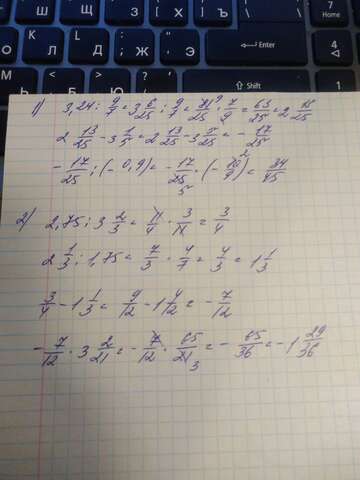 7
Home
Р
О
Л
Д
Ж
Э
Enter
4
И
Т
Ь
Б
Ю
Shift
1
1) 3,24 : 9/7 = 3 6/25 : 9/7 = 81/25 · 7/9 = 63/25 = 2 13/25
2 13/25 - 3 1/5 = 2 13/25 - 3 5/25 = - 17/25
- 17/25 : (- 0,9) = - 17/25 · (- 10/9) = 34/45
2) 2,75 : 3 2/3 = 11/4 · 3/11 = 3/4
2 1/3 : 1,75 = 7/3 · 4/7 = 4/3 = 1 1/3
3/4 - 1 1/3 = 9/12 - 1 4/12 = - 7/12
- 7/12 · 3 2/21 = - 7/12 · 65/21 = - 65/36 = - 1 29/36